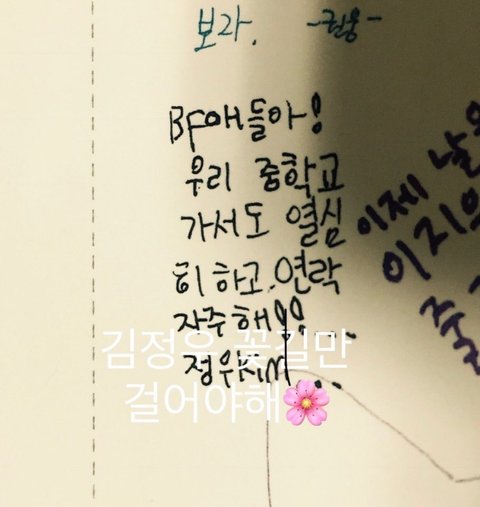 보라. -권웅-
BF애들아!
우리 중학교
가서도 열심
히 하고.연락
자주해!!....
정우Kim..
김정우 꽃길만
걸어야해🌸
이제 날
이지의